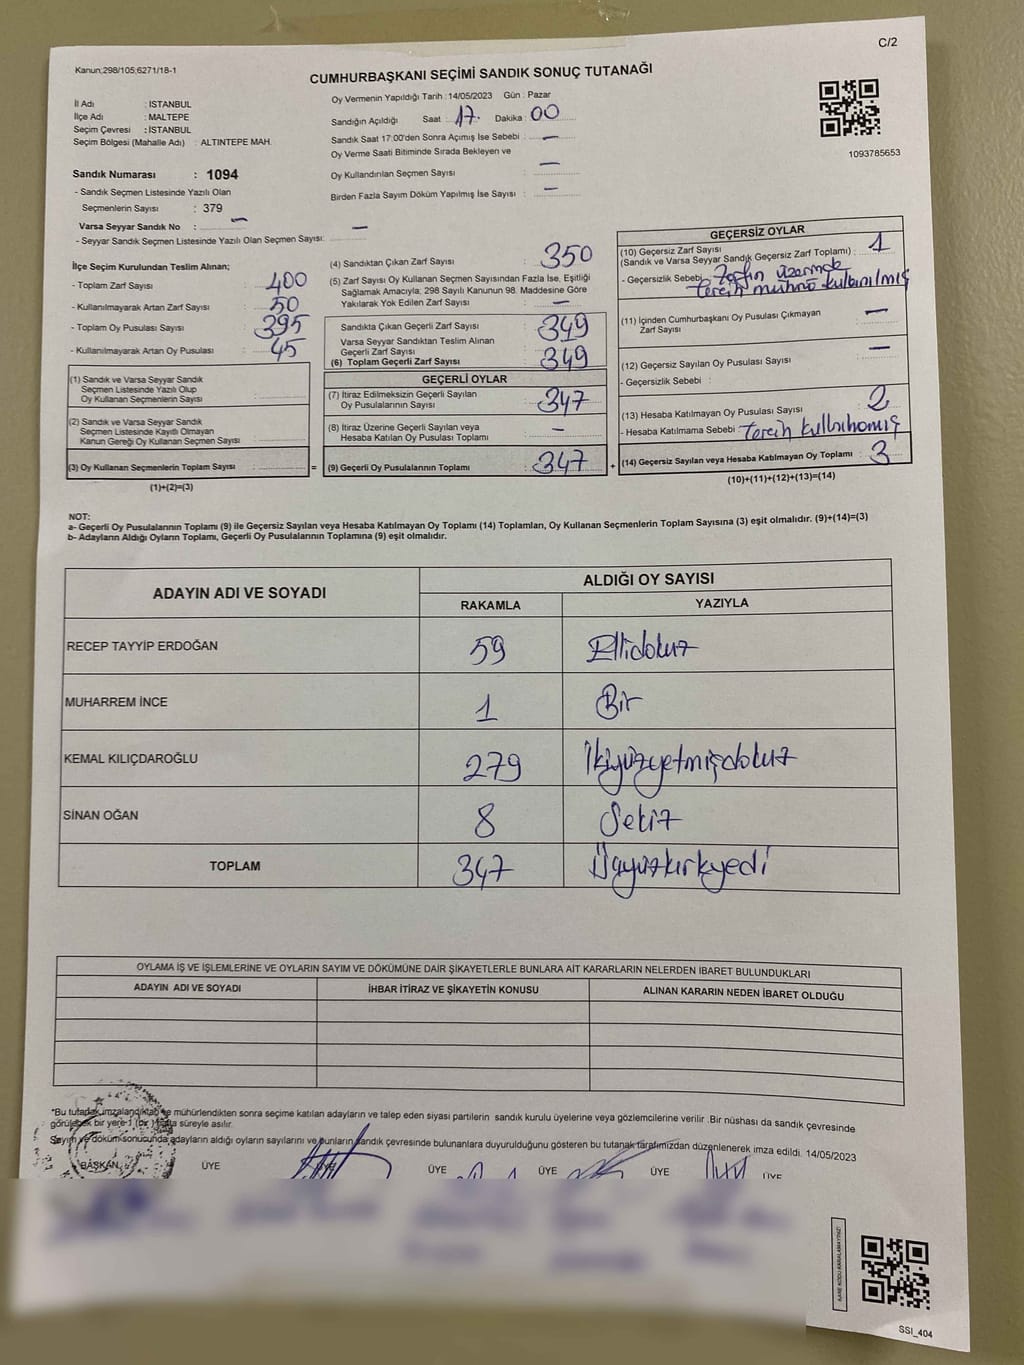 C/2
Kanun;298/105;6271/18-1
CUMHURBAŞKANI SEÇİMİ SANDIK SONUÇ TUTANAĞI
İl Adı : İSTANBUL
İlçe Adı : MALTEPE
Seçim Çevresi : İSTANBUL
Seçim Bölgesi (Mahalle Adı) : ALTINTEPE MAH.
Sandık Numarası : 1094
- Sandık Seçmen Listesinde Yazılı Olan
Seçmenlerin Sayısı : 379
Varsa Seyyar Sandık No : —
- Seyyar Sandık Seçmen Listesinde Yazılı Olan Seçmen Sayısı: —
Oy Vermenin Yapıldığı Tarih : 14/05/2023 Gün : Pazar
Sandığın Açıldığı Saat : 17. Dakika : 00
Sandık Saat 17:00'den Sonra Açımış İse Sebebi : —
Oy Verme Saati Bitiminde Sırada Bekleyen ve
Oy Kullandırılan Seçmen Sayısı : —
Birden Fazla Sayım Döküm Yapılmış İse Sayısı : —
1093785653
İlçe Seçim Kurulundan Teslim Alınan;
- Toplam Zarf Sayısı : 400
- Kullanılmayarak Artan Zarf Sayısı : 50
- Toplam Oy Pusulası Sayısı : 395
- Kullanılmayarak Artan Oy Pusulası : 45
(1) Sandık ve Varsa Seyyar Sandık
Seçmen Listesinde Yazılı Olup
Oy Kullanan Seçmenlerin Sayısı :
(2) Sandık ve Varsa Seyyar Sandık
Seçmen Listesinde Kayıtlı Olmayan
Kanun Gereği Oy Kullanan Seçmen Sayısı :
(3) Oy Kullanan Seçmenlerin Toplam Sayısı : =
(1)+(2)=(3)
(4) Sandıktan Çıkan Zarf Sayısı : 350
(5) Zarf Sayısı Oy Kullanan Seçmen Sayısından Fazla İse, Eşitliği
Sağlamak Amacıyla; 298 Sayılı Kanunun 98. Maddesine Göre
Yakılarak Yok Edilen Zarf Sayısı : —
Sandıkta Çıkan Geçerli Zarf Sayısı : 349
Varsa Seyyar Sandıktan Teslim Alınan
Geçerli Zarf Sayısı :
(6) Toplam Geçerli Zarf Sayısı : 349
GEÇERLİ OYLAR
(7) İtiraz Edilmeksizin Geçerli Sayılan
Oy Pusulalarının Sayısı : 347
(8) İtiraz Üzerine Geçerli Sayılan veya
Hesaba Katılan Oy Pusulası Toplamı : —
(9) Geçerli Oy Pusulalarının Toplamı : 347 +
GEÇERSİZ OYLAR
(10) Geçersiz Zarf Sayısı
(Sandık ve Varsa Seyyar Sandık Geçersiz Zarf Toplamı) : 1
- Geçersizlik Sebebi : Zarfın üzerinde
tercih mührü kullanılmış
(11) İçinden Cumhurbaşkanı Oy Pusulası Çıkmayan
Zarf Sayısı : —
(12) Geçersiz Sayılan Oy Pusulası Sayısı : —
- Geçersizlik Sebebi :
(13) Hesaba Katılmayan Oy Pusulası Sayısı : 2
- Hesaba Katılmama Sebebi : tercih kullanılmamış
(14) Geçersiz Sayılan veya Hesaba Katılmayan Oy Toplamı : 3
(10)+(11)+(12)+(13)=(14)
NOT:
a- Geçerli Oy Pusulalarının Toplamı (9) ile Geçersiz Sayılan veya Hesaba Katılmayan Oy Toplamı (14) Toplamları, Oy Kullanan Seçmenlerin Toplam Sayısına (3) eşit olmalıdır. (9)+(14)=(3)
b- Adayların Aldığı Oyların Toplamı, Geçerli Oy Pusulalarının Toplamına (9) eşit olmalıdır.
ADAYIN ADI VE SOYADI ALDIĞI OY SAYISI
RAKAMLA YAZIYLA
RECEP TAYYİP ERDOĞAN 59 Ellidokuz
MUHARREM İNCE 1 Bir
KEMAL KILIÇDAROĞLU 279 İkiyüzyetmişdokuz
SİNAN OĞAN 8 Sekiz
TOPLAM 347 Üçyüzkırkyedi
OYLAMA İŞ VE İŞLEMLERİNE VE OYLARIN SAYIM VE DÖKÜMÜNE DAİR ŞİKAYETLERLE BUNLARA AİT KARARLARIN NELERDEN İBARET BULUNDUKLARI
ADAYIN ADI VE SOYADI İHBAR İTİRAZ VE ŞİKAYETİN KONUSU ALINAN KARARIN NEDEN İBARET OLDUĞU
*Bu tutanak imzalandıktan ve mühürlendikten sonra seçime katılan adayların ve talep eden siyasi partilerin sandık kurulu üyelerine veya gözlemcilerine verilir .Bir nüshası da sandık çevresinde
görülebilek bir yere 1 (bir) hafta süreyle asılır.
Sayım ve döküm sonucunda adayların aldığı oyların sayılarını ve bunların sandık çevresinde bulunanlara duyurulduğunu gösteren bu tutanak tarafımızdan düzenlenerek imza edildi. 14/05/2023
BAŞKAN ÜYE ÜYE ÜYE ÜYE ÜYE ÜYE
SSI_404